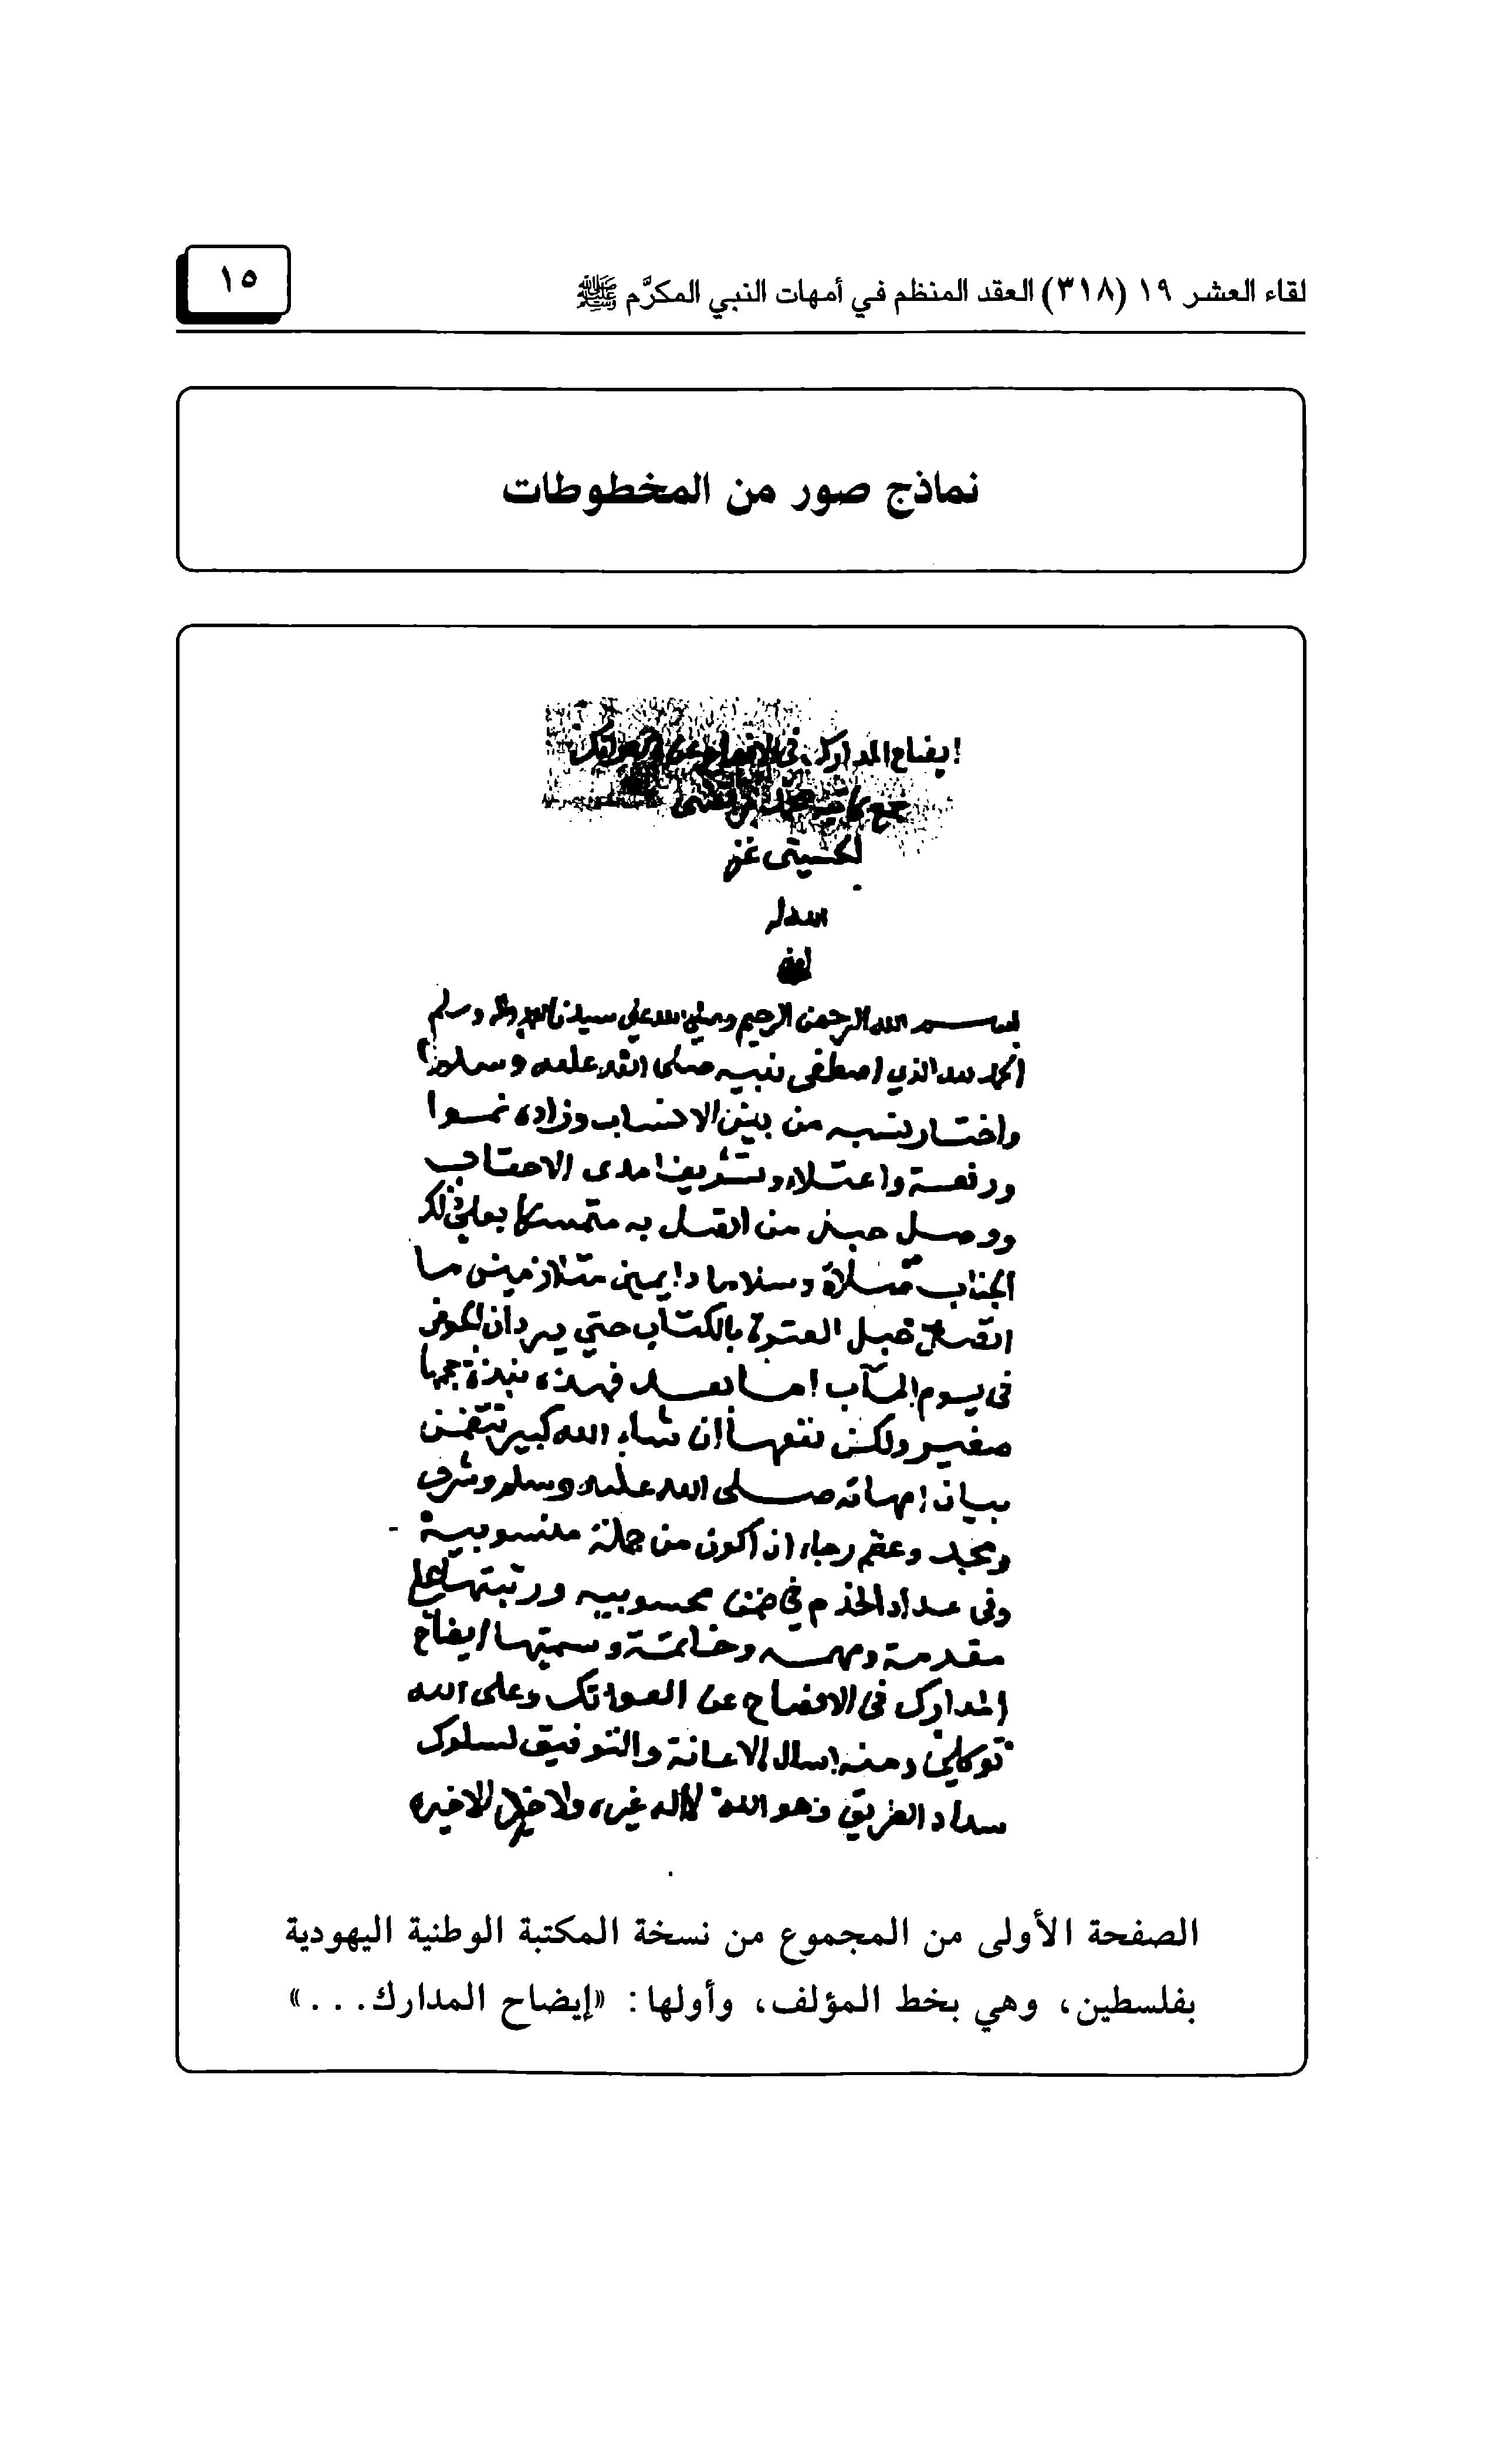 لقاء العشر ١٩ (٣١٨) العقد المنظم في أمهات النبي المكرَّم ﷺ
١٥
نماذج صور من المخطوطات
إيضاح المدارك في الافصاح عن العواتك
جمع كاتبه محمد مرتضى
الحسيني غفر
الله له
بسم الله الرحمن الرحيم وصلى الله على سيدنا محمد واله وسلم
الحمد لله الذي اصطفى نبيه صلى الله عليه وسلم
واختار نسبه من بين الانساب وزاده نموا
ورفعة واعتلاء وتشريفا مدى الاحقاب
ووصل حبل من اتصل به متمسكا بعلي ذلك
الجناب صلاة وسلاما دايمين متلازمين ما
اتصل حبل العترة بالكتاب حتي يردان الحوض
في يوم المآب اما بعد فهذه نبذة حجمها
صغير ولكن نفعها ان شاء الله كبير تتضمن
بيان امهاته صلى الله عليه وسلم وشرف
ومجد وعظم رجاء ان اكون من جملة منسوبيه
وفي عداد الخدم في ضمن محسوبيه ورتبتها على
مقدمة ومهمه وخاتمة وسميتها ايضاح
المدارك في الافصاح عن العواتك وعلى الله
توكلي ومنه اسال الاعانة والتوفيق لسلوك
سداد الطريق وهو الله لا اله غيره ولا خير الا خيره
الصفحة الأولى من المجموع من نسخة المكتبة الوطنية اليهودية
بفلسطين، وهي بخط المؤلف، وأولها: «إيضاح المدارك...»